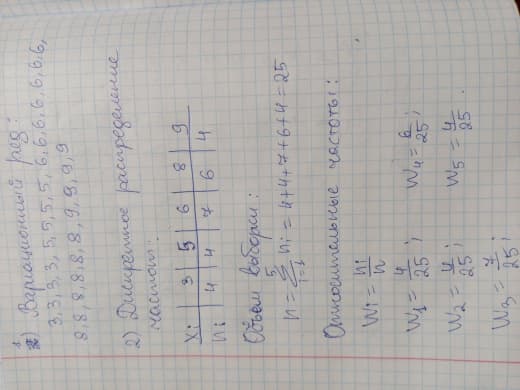 1) Вариационный ряд:
3,3,3,3,5,5,5,5,6,6,6,6,6,6,6,
8,8,8,8,8,8,9,9,9,9
2) Дискретное распределение
частот:
xi | 3 | 5 | 6 | 8 | 9
ni | 4 | 4 | 7 | 6 | 4
Объём выборки:
n = 5∑i=1 ni = 4+4+7+6+4 = 25
Относительные частоты:
Wi = ni/n
W1 = 4/25; W4 = 6/25;
W2 = 4/25; W5 = 4/25.
W3 = 7/25;